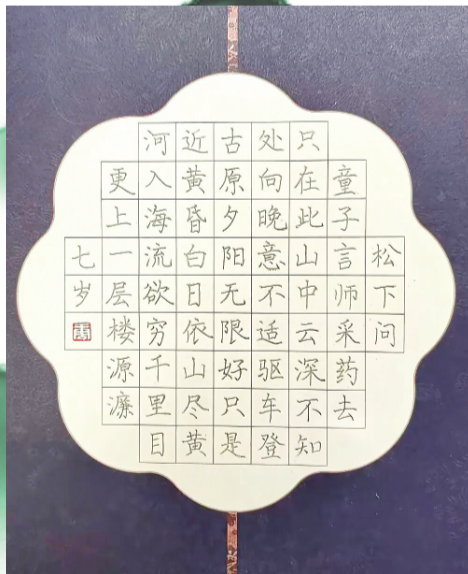 松下问
童子言师采药去
只在此山中云深不知
处向晚意不适驱车登
古原夕阳无限好只是
近黄昏白日依山尽黄
河入海流欲穷千里目
更上一层楼源濂
七岁